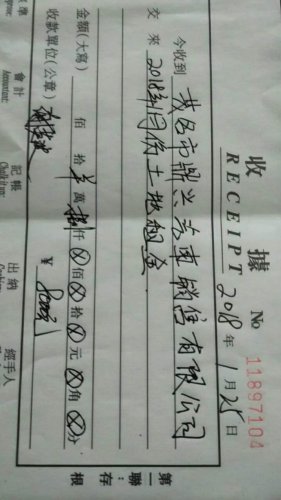 收據
RECEIPT
No 11897104
2018年1月25日
今收到 茂名市鼎兴芳車销售有限公司
交來 2018年1月份土地租金
金額(大寫) 佰 拾 萬 捌仟⊗佰⊗拾⊗元⊗角⊗分
¥ 8000元
收款單位(公章)
會計
Accountant:
記帳
出納
經手人
第一聯:存根